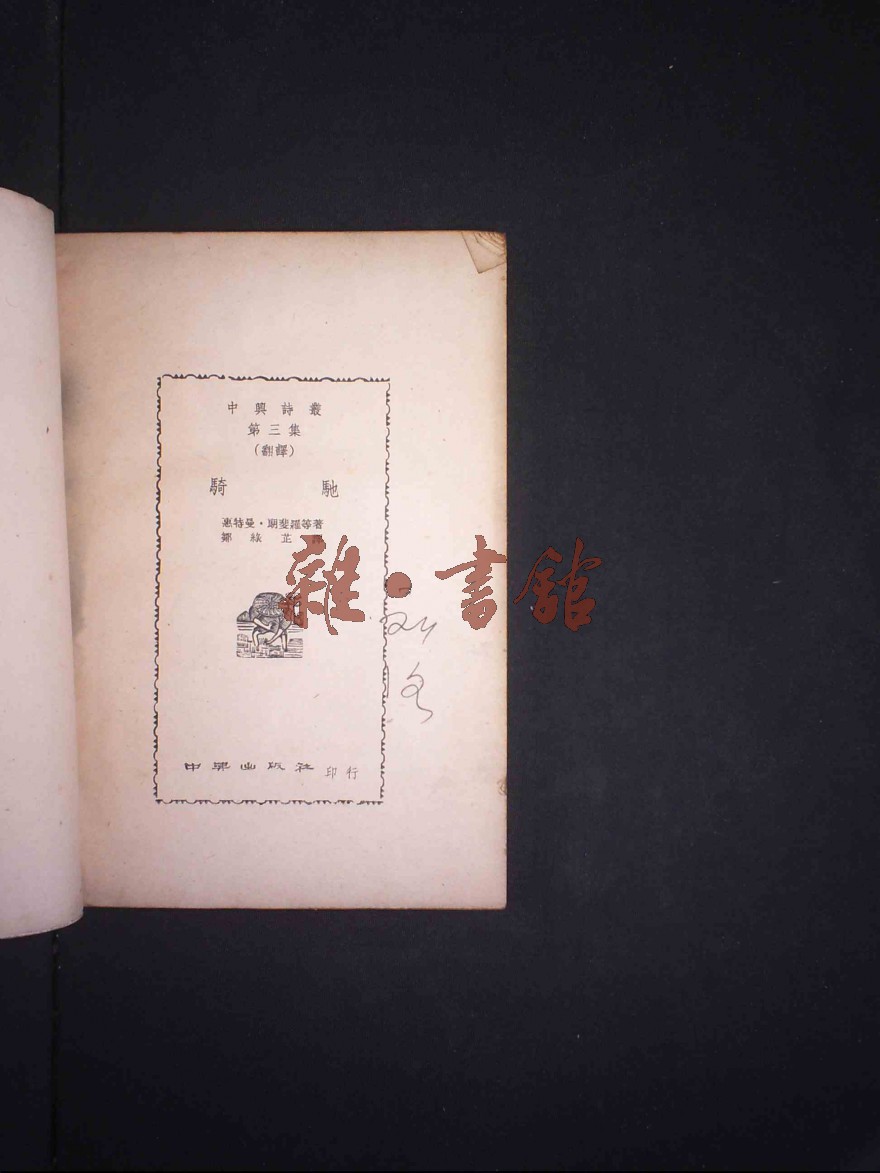 中興詩叢
第三集
(翻譯)
騎馳
惠特曼・朗斐羅等著
鄒綠芷譯
雜・書館
中興出版社印行